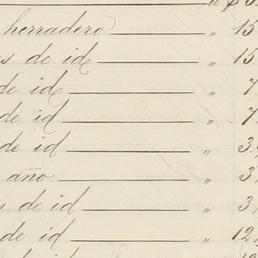 herradero „ 15
s de id „ 15
de id „ 7
de id „ 7
de id „ 3
año „ 3
s de id „ 3
de id „ 12